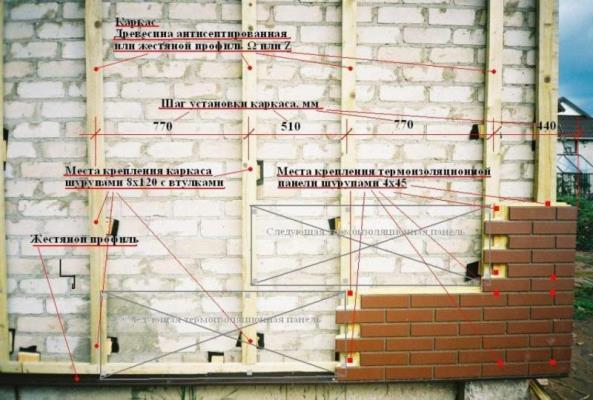 Каркас
Древесина антисептированная
или жестяной профиль Ω или Z
Шаг установки каркаса, мм
770
510
770
440
Места крепления каркаса
шурупами 8х120 с втулками
Места крепления термоизоляционной
панели шурупами 4х45
Жестяной профиль
Следующая термоизоляционная панель
Следующая термоизоляционная панель